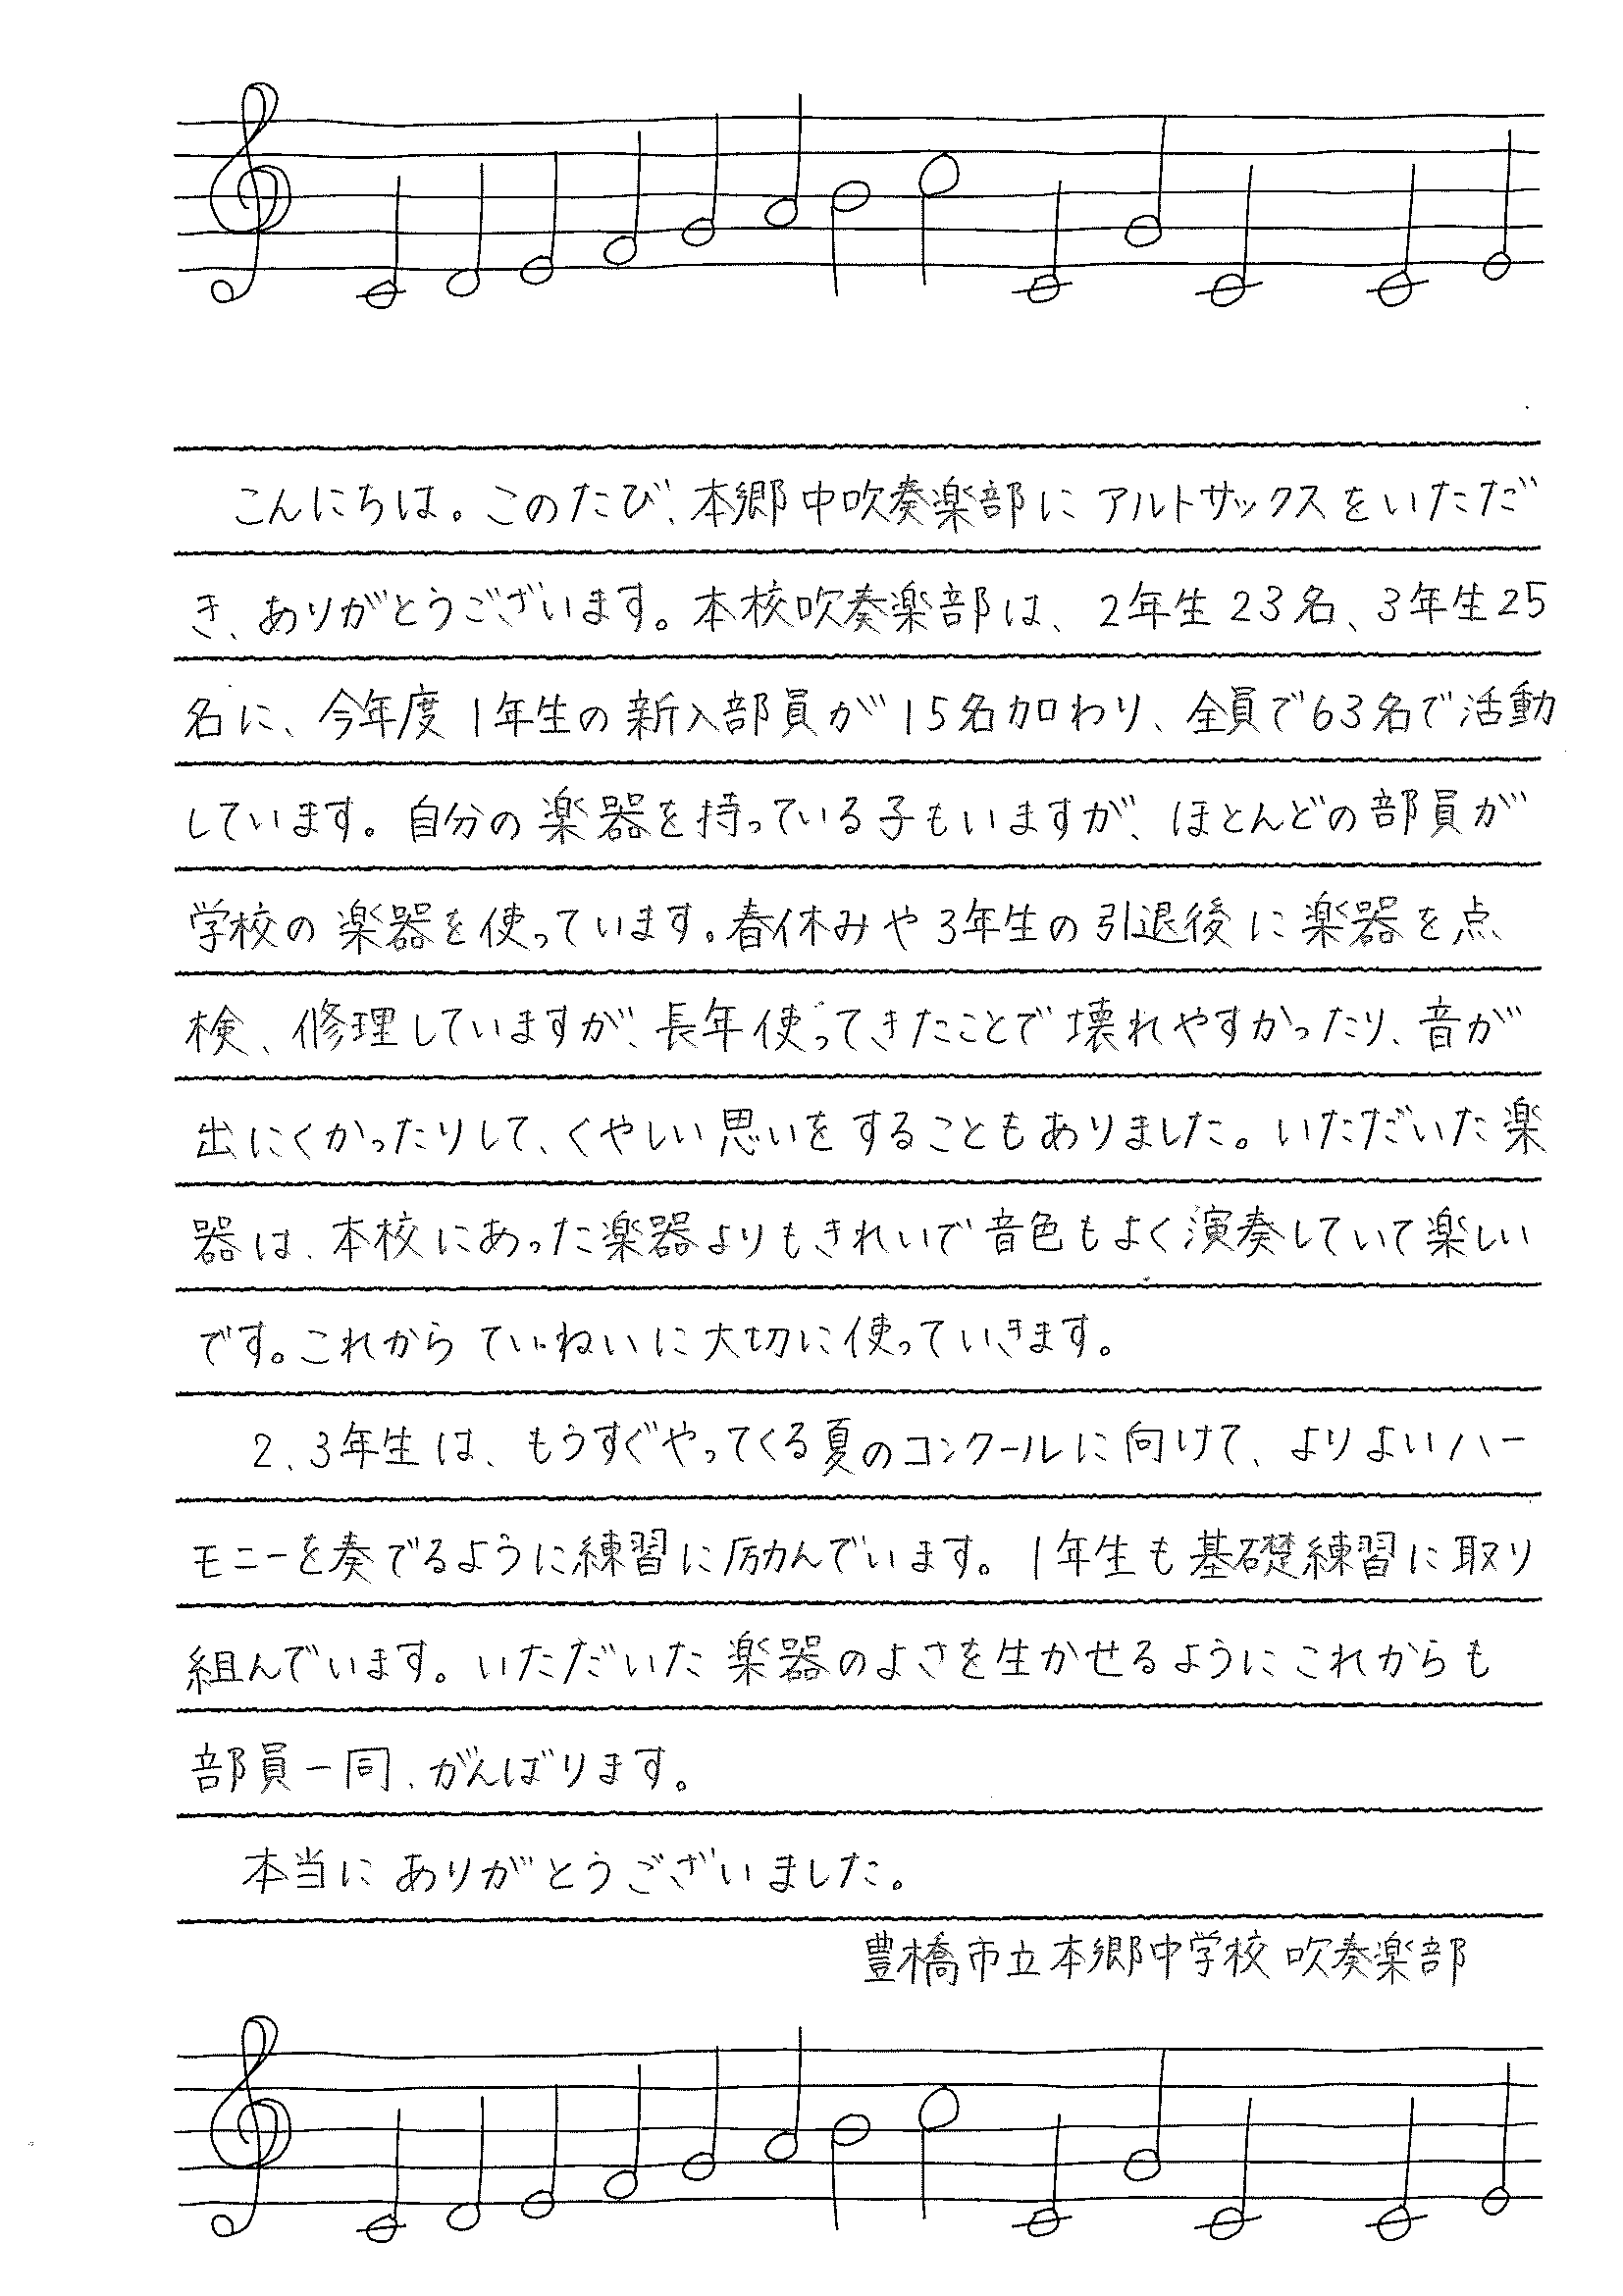 こんにちは。このたび、本郷中吹奏楽部にアルトサックスをいただ
き、ありがとうございます。本校吹奏楽部は、2年生23名、3年生25
名に、今年度1年生の新入部員が15名加わり、全員で63名で活動
しています。自分の楽器を持っている子もいますが、ほとんどの部員が
学校の楽器を使っています。春休みや3年生の引退後に楽器を点
検、修理していますが、長年使ってきたことで壊れやすかったり、音が
出にくかったりして、くやしい思いをすることもありました。いただいた楽
器は、本校にあった楽器よりもきれいで音色もよく演奏していて楽しい
です。これからていねいに大切に使っていきます。
2、3年生は、もうすぐやってくる夏のコンクールに向けて、よりよいハー
モニーを奏でるように練習に励んでいます。1年生も基礎練習に取り
組んでいます。いただいた楽器のよさを生かせるようにこれからも
部員一同、がんばります。
本当にありがとうございました。
豊橋市立本郷中学校 吹奏楽部